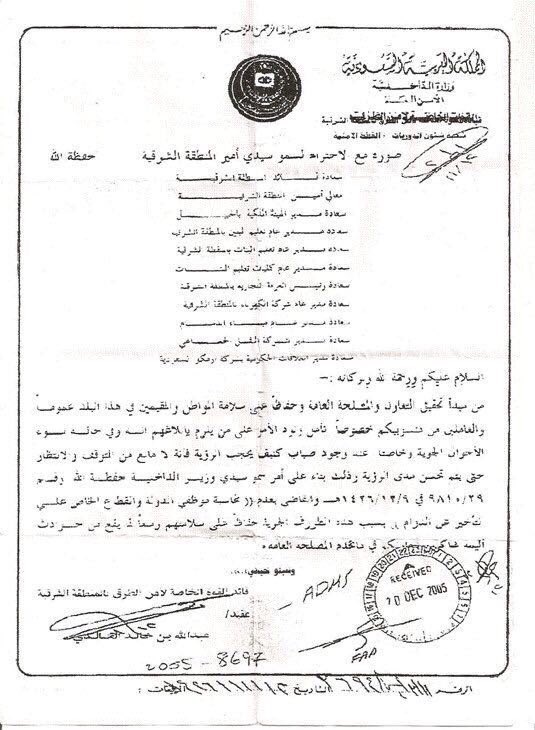 بسم الله الرحمن الرحيم
المملكة العربية السعودية
وزارة الداخلية
الأمن العام
القوات الخاصة لأمن الطرق
الشرقية
صورة مع لاحترام لسمو سيدي أمير المنطقة الشرقية حفظة الله
سعادة قائد المنطقة الشرقية
معالي أمين المنطقة الشرقية
سعادة مدير الهيئة الملكية بالجبيل
سعادة مدير عام تعليم لبنين بالمنطقة الشرقية
سعادة مدير عام تعليم البنات
سعادة مدير عام كليات تعليم البنات
سعادة رئيس الغرفة التجارية بالمنطقة الشرقية
سعادة مدير عام شركة الكهرباء بالمنطقة الشرقية
سعادة مدير عام ميناء الدمام
سعادة مدير شركة النقل الجماعي
سعادة مدير العلاقات الحكومية بشركة ارمكو السعودية
السلام عليكم ورحمة الله وبركاته :-
من مبدأ تحقيق التعاون والمصلحة العامة وحفاظ على سلامة المواطن والمقيمين في هذا البلد عموماً
والعاملين من منسوبيكم خصوصاً نأمل ردود الأمر على من يلزم بإبلاغهم انه وفي حالة سوء
الأحوال الجوية وخاصتا عند وجود ضباب كثيف يحجب الرؤية فانة لا مانع من التوقف والانتظار
حتى يتم تحسن مدى الرؤية وذلك بناء على أمر سمو سيدي وزير الداخلية حفظة الله رقم
٩٨١٠/٢٩ في ١٤٢٦/١٢/٩هـ والقاضي بعدم محاسبة موظفي الدولة والقطاع الخاص على
تأخير عن الدوام بسبب هذه الظروف الجوية حفاظ على سلامتهم ومنعاً لما يقع من حوادث
المصلحة العامة
قائد القوة الخاصة لامن الطرق بالمنطقة الشرقية
عقيد/
عبدالله بن خالد
ADMS
RECEIVED
DEC 2005
2005 - 8697
الرقم
التاريخ